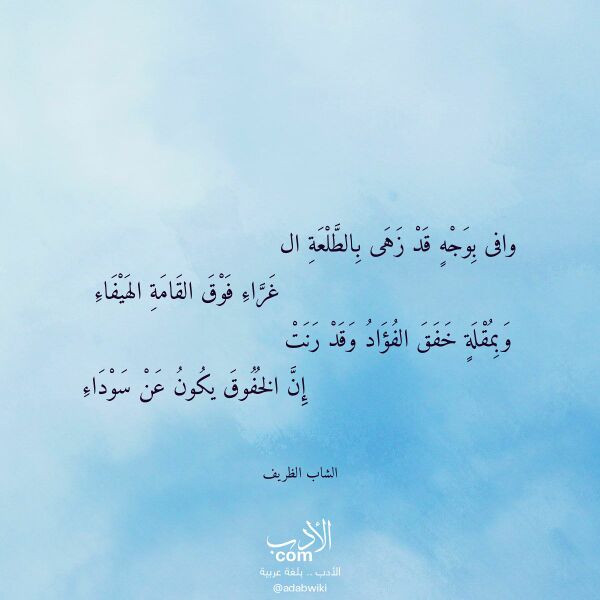 وافى بِوَجْهٍ قَدْ زَهَى بِالطَّلْعَةِ ال
غَرَّاءِ فَوْقَ القَامَةِ الهَيْفَاءِ
وَبِمُقْلَةٍ خَفَقَ الفُؤَادُ وَقَدْ رَنَتْ
إِنَّ الخُفُوقَ يكُونُ عَنْ سَوْدَاءِ
الشاب الظريف
الأدب
com
الأدب .. بلغة عربية
@adabwiki